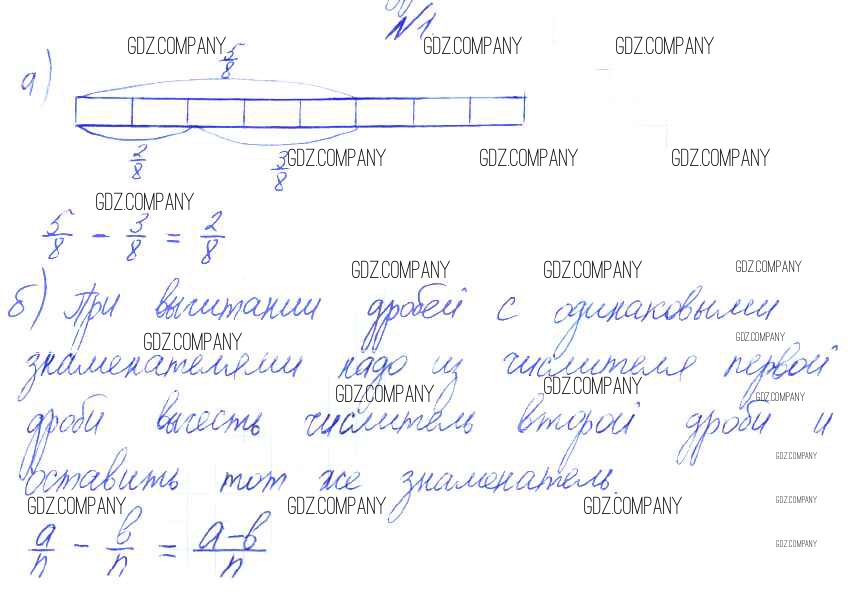 N1
GDZ.COMPANY GDZ.COMPANY GDZ.COMPANY
а) 5/8
2/8 3/8 GDZ.COMPANY GDZ.COMPANY GDZ.COMPANY
GDZ.COMPANY
5/8 - 3/8 = 2/8
GDZ.COMPANY GDZ.COMPANY GDZ.COMPANY
б) При вычитании дробей с одинаковыми
GDZ.COMPANY GDZ.COMPANY
знаменателями надо из числителя первой
GDZ.COMPANY GDZ.COMPANY GDZ.COMPANY
дроби вычесть числитель второй дроби и
GDZ.COMPANY
оставить тот же знаменатель.
GDZ.COMPANY GDZ.COMPANY GDZ.COMPANY GDZ.COMPANY
a/n - b/n = a-b/n
GDZ.COMPANY